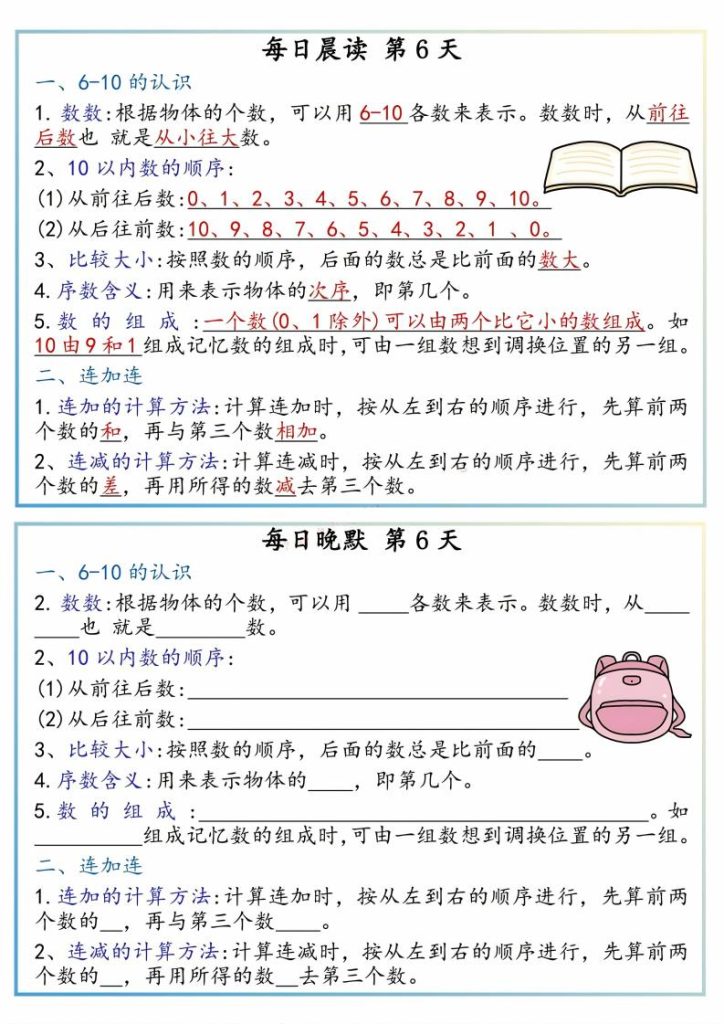 每日晨读 第6天
一、6-10的认识
1. 数数:根据物体的个数，可以用 6-10 各数来表示。数数时，从前往
后数也 就是从小往大数。
2、10以内数的顺序:
(1)从前往后数:0、1、2、3、4、5、6、7、8、9、10。
(2)从后往前数:10、9、8、7、6、5、4、3、2、1 、0。
3、比较大小:按照数的顺序，后面的数总是比前面的数大。
4. 序数含义:用来表示物体的次序，即第几个。
5. 数 的 组 成 :一个数(0、1除外)可以由两个比它小的数组成。如
10由9和1组成记忆数的组成时,可由一组数想到调换位置的另一组。
二、连加连
1. 连加的计算方法:计算连加时，按从左到右的顺序进行，先算前两
个数的和，再与第三个数相加。
2、连减的计算方法:计算连减时，按从左到右的顺序进行，先算前两
个数的差，再用所得的数减去第三个数。
每日晚默 第6天
一、6-10的认识
2. 数数:根据物体的个数，可以用 ____各数来表示。数数时，从____
____也 就是_______数。
2、10以内数的顺序:
(1)从前往后数:______________________________
(2)从后往前数:______________________________
3、比较大小:按照数的顺序，后面的数总是比前面的____。
4. 序数含义:用来表示物体的____，即第几个。
5. 数 的 组 成 :____________________________________。如
_________组成记忆数的组成时,可由一组数想到调换位置的另一组。
二、连加连
1. 连加的计算方法:计算连加时，按从左到右的顺序进行，先算前两
个数的__，再与第三个数____。
2、连减的计算方法:计算连减时，按从左到右的顺序进行，先算前两
个数的__，再用所得的数__去第三个数。